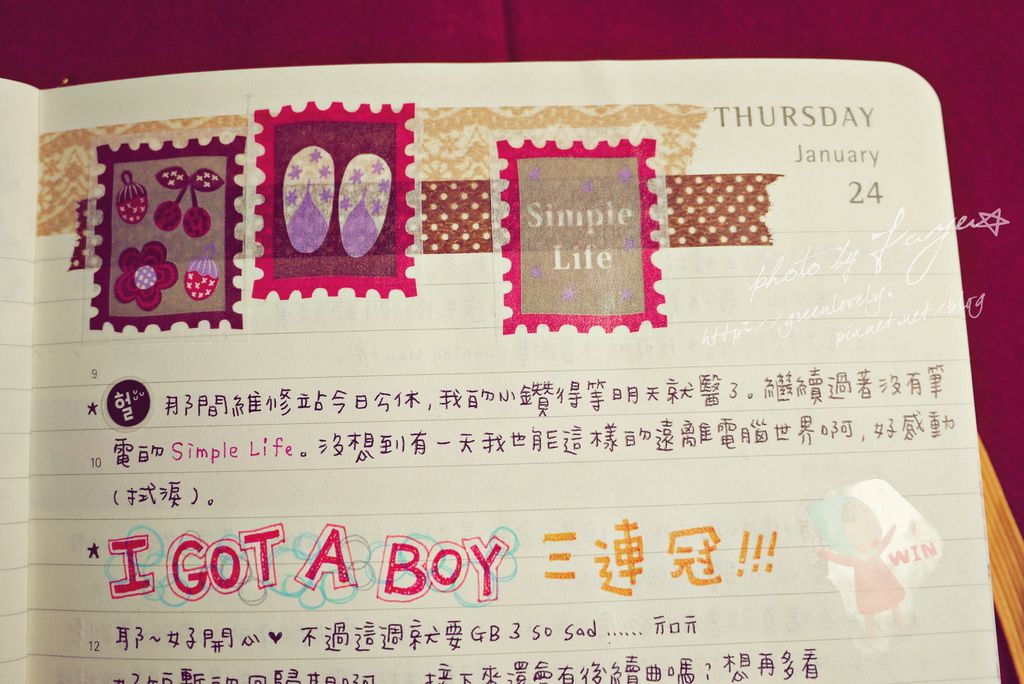 THURSDAY
January
24
Simple
Life
photo by
http://greenlovely.
pixnet.net/blog
9
헐
那間維修站今日公休,我的小鑽得等明天就醫了。繼續過著沒有筆
電的Simple Life。沒想到有一天我也能這樣的遠離電腦世界啊,好感動
10
(拭淚)。
I GOT A BOY 三連冠!!!
WIN
耶~好開心♥ 不過這週就要GB3 so sad ......
12
接下來還會有後續曲嗎?想再多看